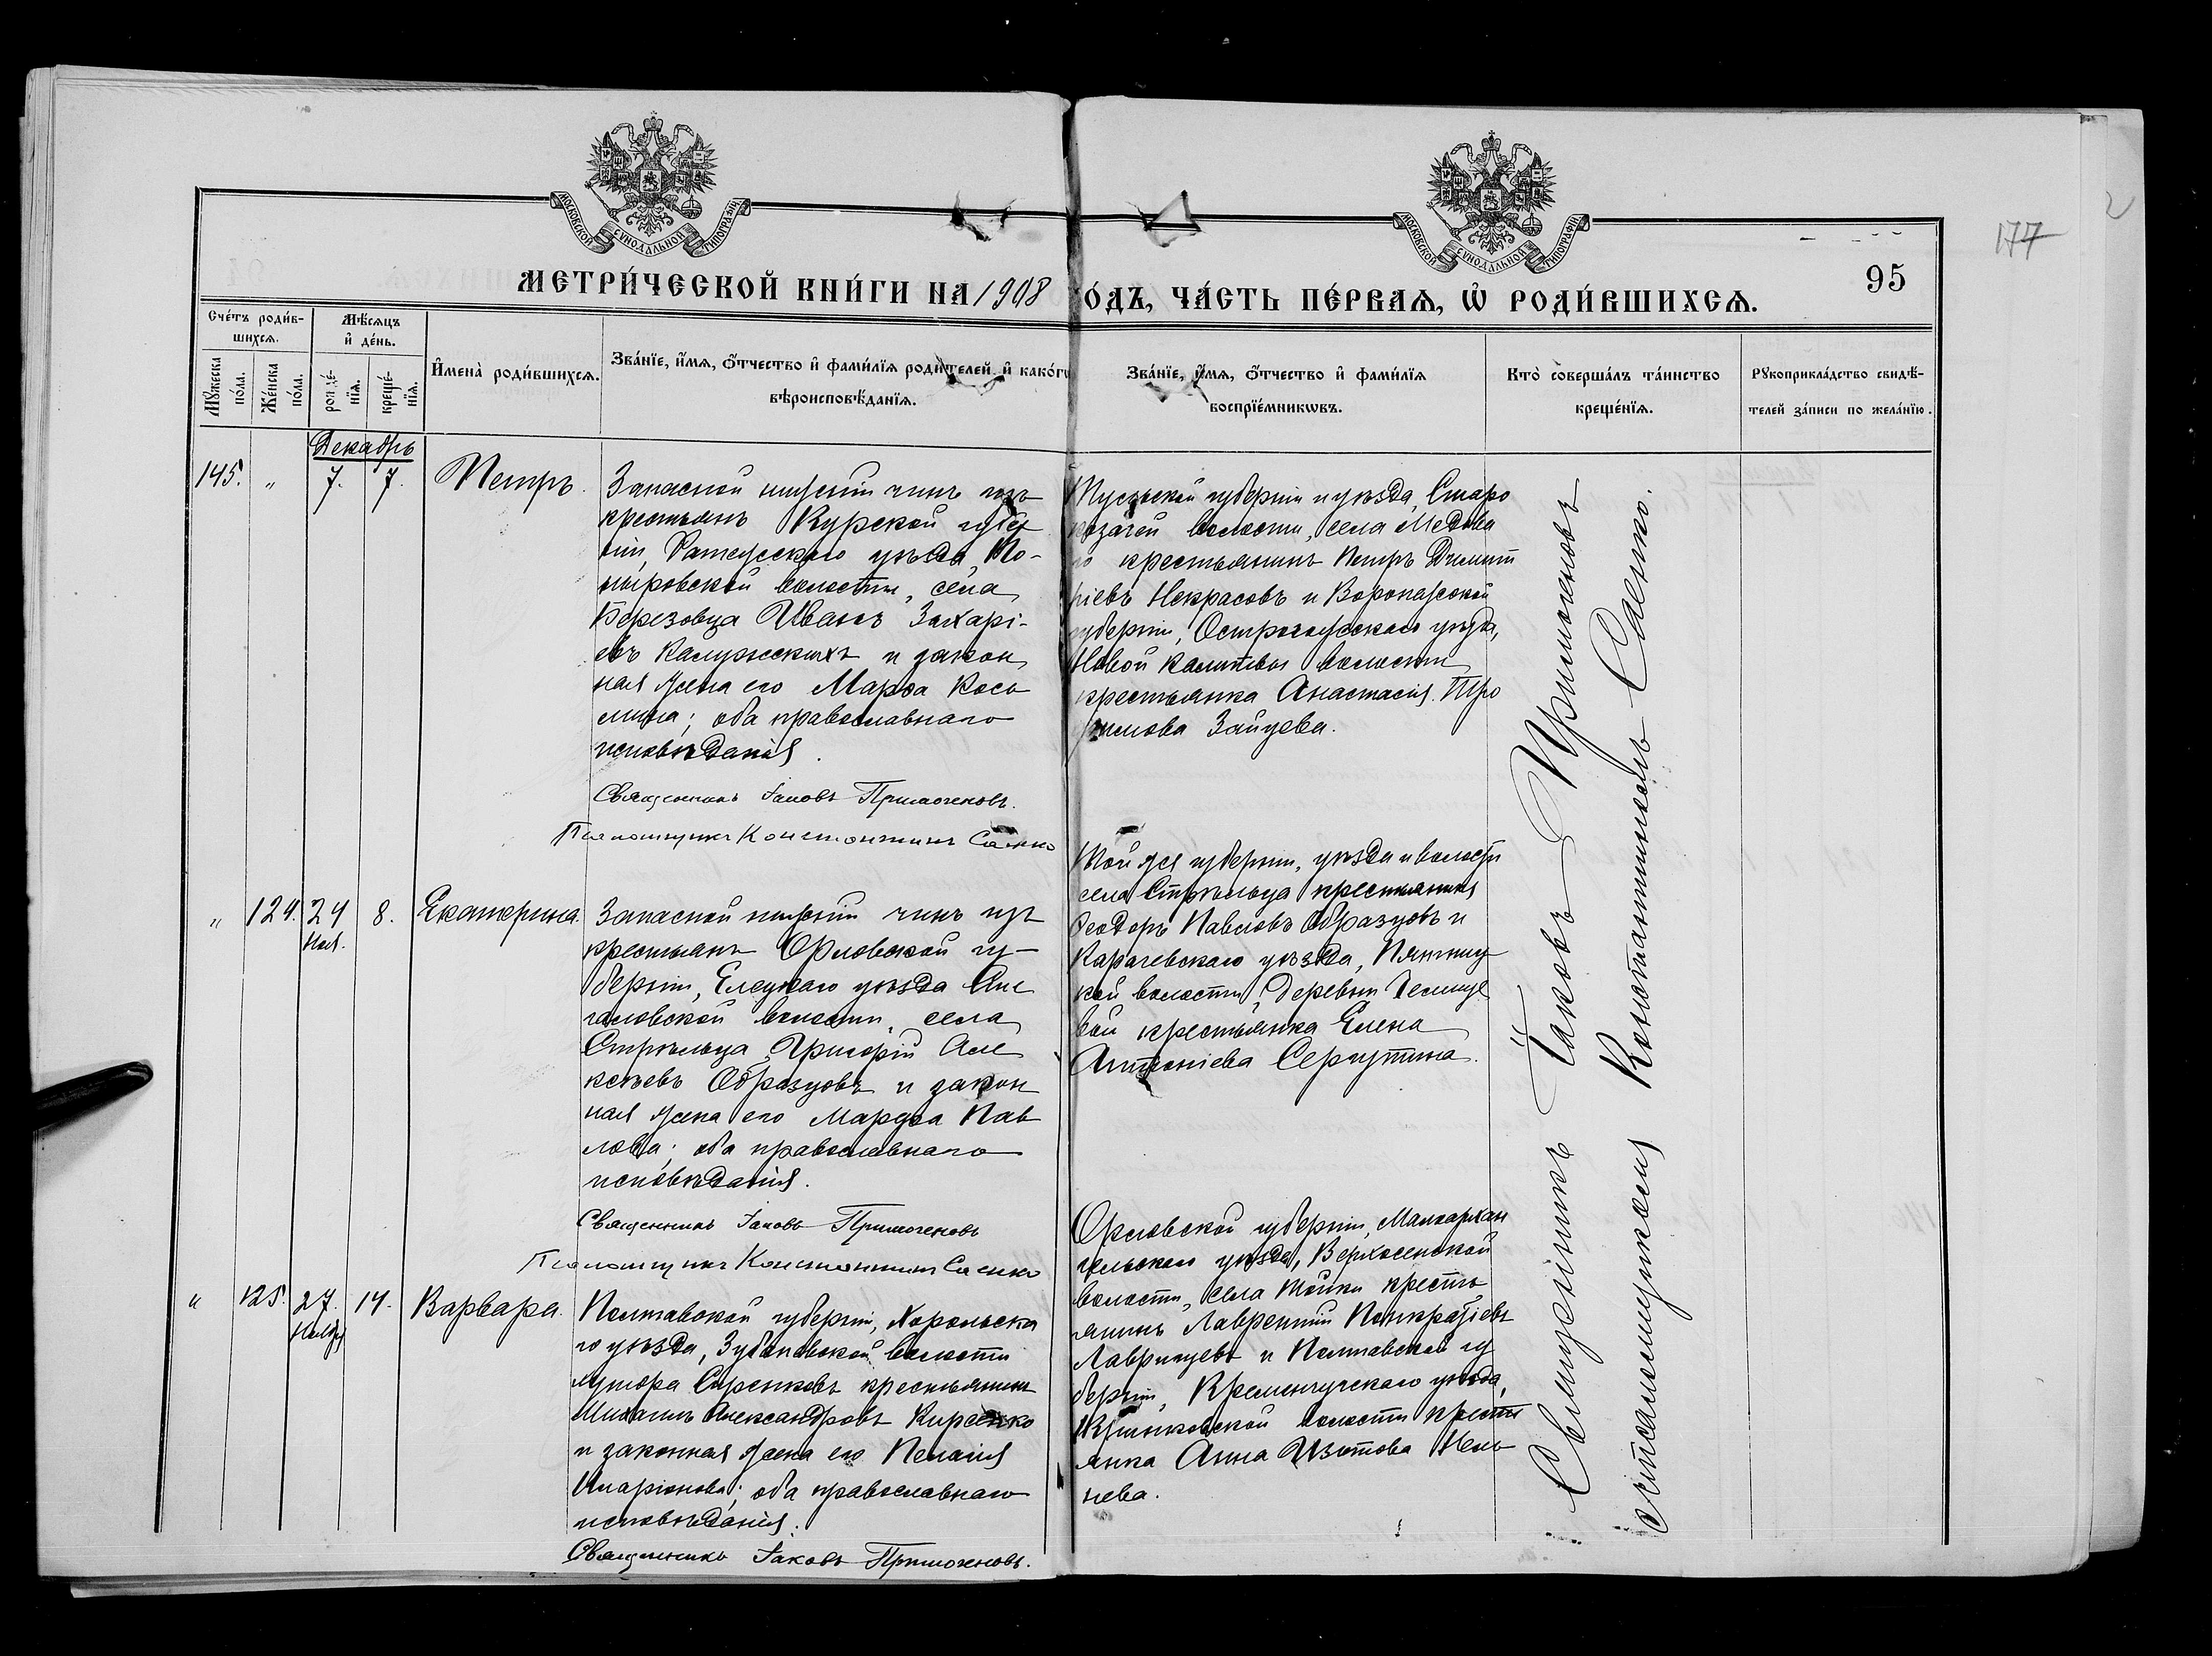 МОСКОВСКОЙ СѴНОДАЛЬНОЙ ТИПОГРАФІИ
МОСКОВСКОЙ СѴНОДАЛЬНОЙ ТИПОГРАФІИ
177
95
МЕТРИ́ЧЕСКОЙ КНИ́ГИ НА 1908
О́ДЪ, ЧА́СТЬ ПЕ́РВАѦ, Ѡ҆ РОДИ́ВШИХСѦ.
Сче́тъ роди́в-
шихсѧ.
Мꙋ́жеска
по́ла.
Же́нска
по́ла.
Мѣ́сѧцъ
и҆ де́нь.
рожде́-
нїѧ.
креще́-
нїѧ.
И҆мена̀ роди́вшихсѧ.
Зва́нїе, и҆́мѧ, ѻ҆́тчество и҆ фами́лїѧ роди́телей и҆ како́гѡ
вѣроисповѣ́данїѧ.
Зва́нїе, и҆́мѧ, ѻ҆́тчество и҆ фами́лїѧ
воспрїе́мникѡвъ.
Кто̀ соверша́лъ та́инство
креще́нїѧ.
Рꙋкоприкла́дство свидѣ́-
телей за́писи по жела́нїю.
Декабрь
145. " 7. 7. Петръ.
Запасной нижній чинъ изъ
крестьянъ Курской губер
ніи, уѣзда, По-
ныровской волости, села
Березовца Иванъ Захарі-
евъ Калужскихъ и закон
ная жена его Марѳа Кось
мина; оба православнаго
исповѣданія.
Священникъ Іаковъ Примогеновъ.
Псаломщикъ Константинъ Саенко
Тульской губерніи и уѣзда, Старо
козачей волости, села Медова
го крестьянинъ Петръ Димит
ріевъ Некрасовъ и Воронежской
губерніи, Острогожскаго уѣзда,
Новой Калитвы волости
крестьянка Анастасія Тро
фимова Зайцева.
" 124. 24 Ноя. 8. Екатерина.
Запасной нижній чинъ изъ
крестьянъ Орловской гу-
берніи, Елецкаго уѣзда
волости, села
Стрѣльца Григорій Але
ксѣевъ Образцовъ и закон
ная жена его Марѳа Пав
лова; оба православнаго
исповѣданія.
Священникъ Іаковъ Примогеновъ
Псаломщикъ Константинъ Саенко
Той же губерніи, уѣзда и волости
села Стрѣльца крестьянинъ
Ѳеодоръ Павловъ Образцовъ и
Карачевскаго уѣзда, Пятниц
кой волости, деревни
крестьянка Елена
Антоніева Серпутина.
" 125. 27. Ноябр 14. Варвара.
Полтавской губерніи, Хорольска
го уѣзда, Зубановской волости
хутора Сиренковъ крестьянинъ
Михаилъ Александровъ Кирсенко
и законная жена его Пелагія
Иларіонова; оба православнаго
исповѣданія.
Священникъ Іаковъ Примогеновъ.
Орловской губерніи, Малоархан
гельскаго уѣзда, Верхосенской
волости, села Тойки кресть
янинъ Лаврентій Панкратіевъ
и Полтавской гу
берніи, Кременчугскаго уѣзда,
Крюковской волости кресть
янка Анна Изотова
нева.
Священникъ Іаковъ Примогеновъ
съ псаломщикомъ Константиномъ Саенко.